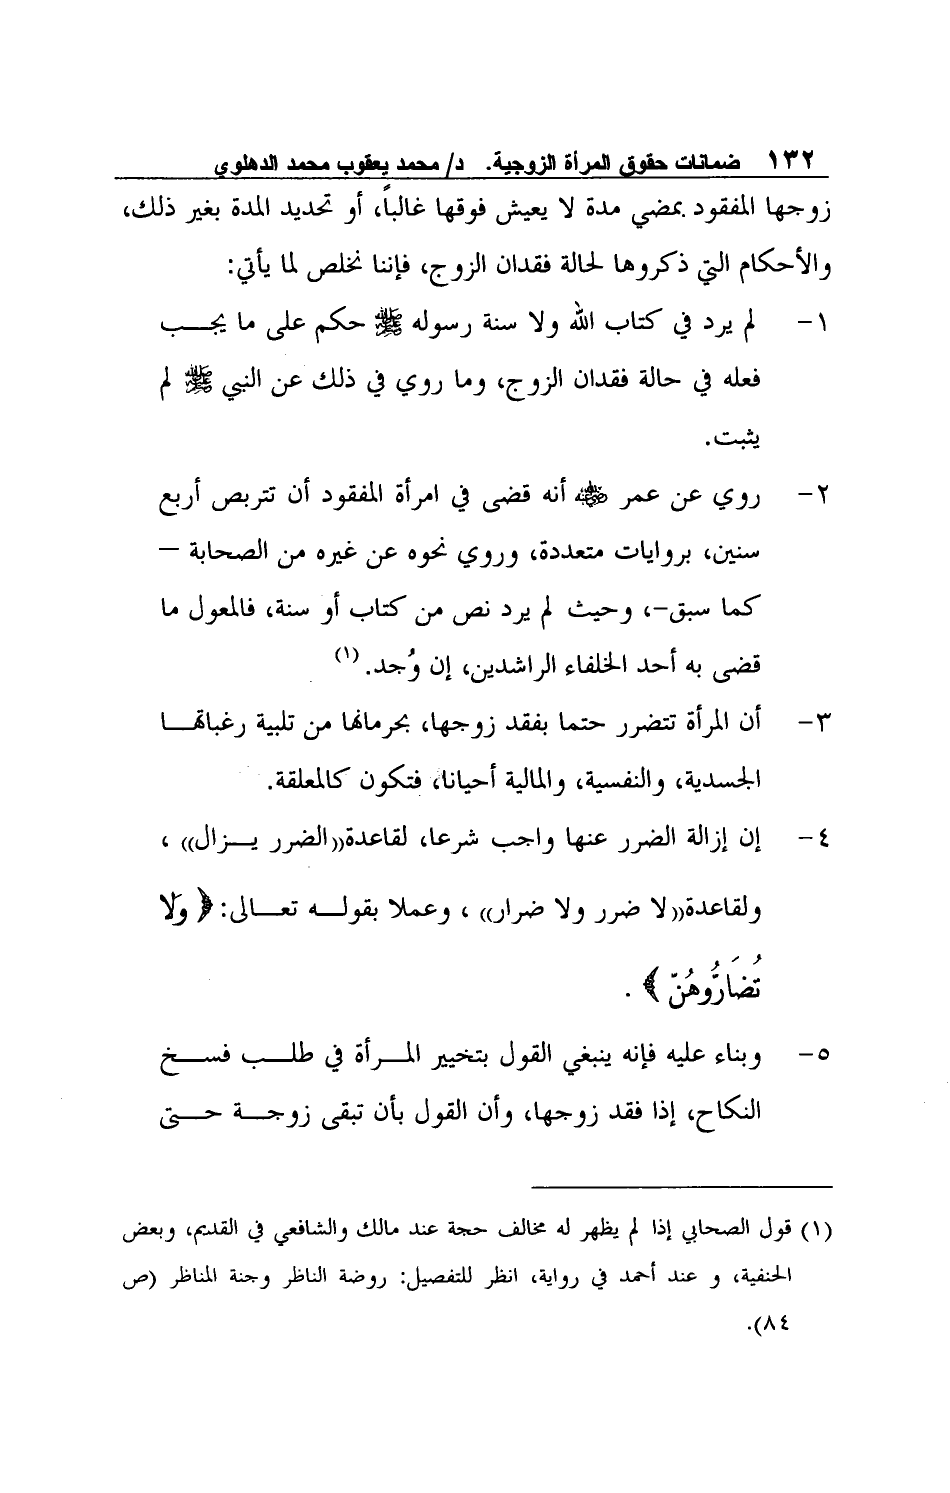 ١٣٢ ضمانات حقوق المرأة الزوجية. د/ محمد يعقوب محمد الدهلوي
زوجها المفقود بمضي مدة لا يعيش فوقها غالباً، أو تحديد المدة بغير ذلك،
والأحكام التي ذكروها لحالة فقدان الزوج، فإننا نخلص لما يأتي:
١- لم يرد في كتاب الله ولا سنة رسوله ﷺ حكم على ما يجـــب
فعله في حالة فقدان الزوج، وما روي في ذلك عن النبي ﷺ لم
يثبت.
٢- روي عن عمر ﵁ أنه قضى في امرأة المفقود أن تتربص أربع
سنين، بروايات متعددة، وروي نحوه عن غيره من الصحابة –
كما سبق-، وحيث لم يرد نص من كتاب أو سنة، فالمعول ما
قضى به أحد الخلفاء الراشدين، إن وُجد. (١)
٣- أن المرأة تتضرر حتما بفقد زوجها، بحرمانها من تلبية رغباتهـــا
الجسدية، والنفسية، والمالية أحيانا، فتكون كالمعلقة.
٤- إن إزالة الضرر عنها واجب شرعا، لقاعدة((الضرر يــزال)) ،
ولقاعدة((لا ضرر ولا ضرار)) ، وعملا بقولــه تعــالى: ﴿ وَلَا
تُضَارُّوهُنَّ ﴾ .
٥- وبناء عليه فإنه ينبغي القول بتخيير المـــرأة في طلــب فســـخ
النكاح، إذا فقد زوجها، وأن القول بأن تبقى زوجــة حـــتى
(١) قول الصحابي إذا لم يظهر له مخالف حجة عند مالك والشافعي في القديم، وبعض
الحنفية، و عند أحمد في رواية، انظر للتفصيل: روضة الناظر وجنة المناظر (ص
٨٤).